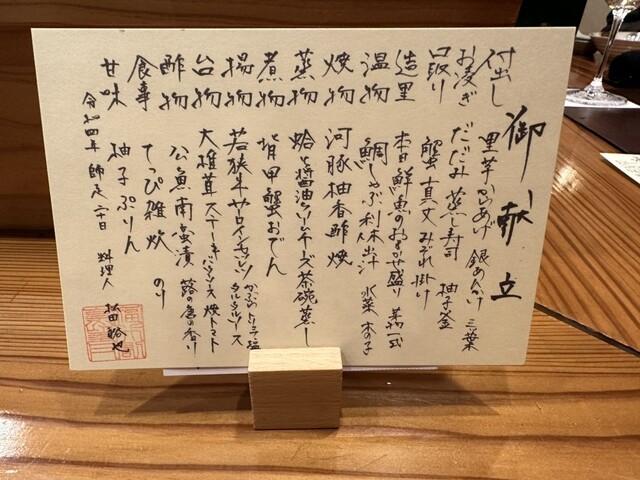 御献立
付出し 里芋からあげ 銀あんかけ 三葉
お凌ぎ だだみ蒸し寿司 柚子釜
口取り 蟹真丈みぞれ掛け
造里 本日鮮魚のおまかせ盛り 芽物一式
温物 鯛しゃぶ 利休出汁 水菜 木の子
焼物 河豚柚香酢焼
蒸物 蛤と醤油クリームチーズ茶碗蒸し
煮物 背甲蟹おでん
揚物 若狭牛サーロインカツレツ タルタルソース
台物 大椎茸ステーキ 焼トマト
酢物 公魚南蛮漬 蕗の薹の香り
食事 てっぴ雑炊 のり
甘味 柚子ぷりん
令和四年 師走二十日 料理人